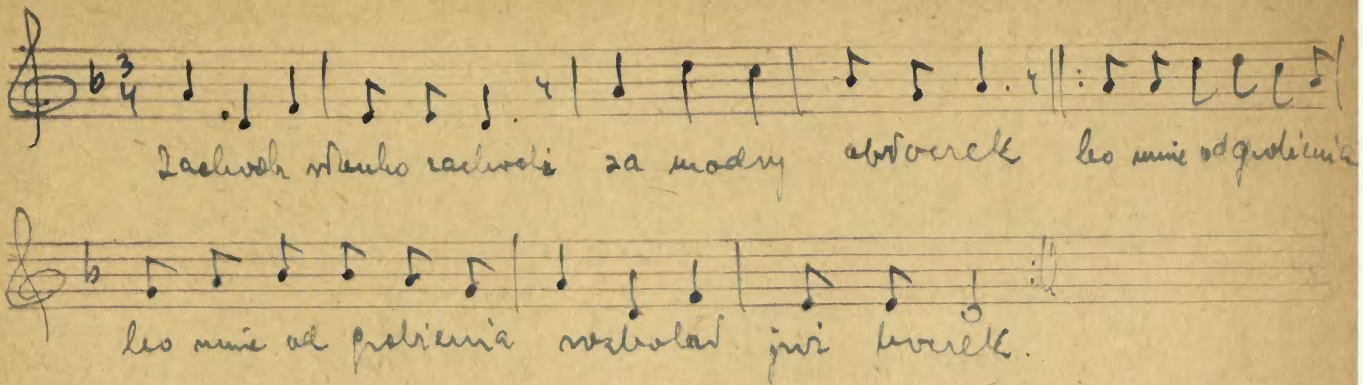 3/4
Zachodź słonko zachodź za modry obłoczek bo mnie od grabienia
bo mnie od grabienia rozbolał już boczek.